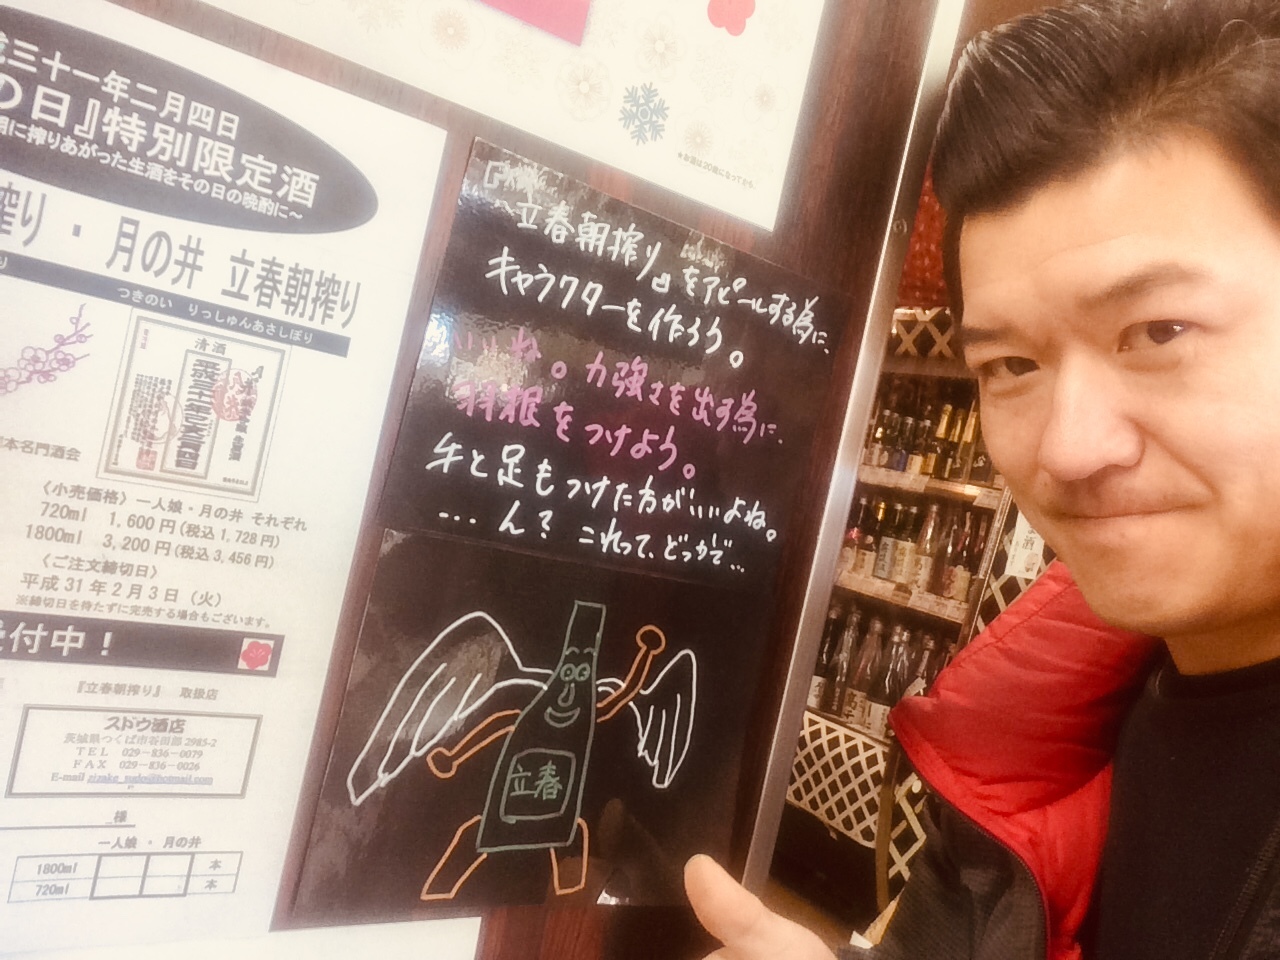 三十一年二月四日
の日』特別限定酒
朝に搾りあがった生酒をその日の晩酌に〜
搾り・月の井 立春朝搾り
つきのい りっしゅんあさしぼり
清酒
日本名門酒会
〈小売価格〉一人娘・月の井 それぞれ
720ml 1,600円(税込1,728円)
1800ml 3,200円(税込3,456円)
〈ご注文締切日〉
平成31年2月3日(火)
※締切日を待たずに完売する場合もございます。
受付中！
『立春朝搾り』 取扱店
スドウ酒店
茨城県つくば市谷田部2985-2
TEL 029-836-0079
FAX 029-836-0026
E-mail
様
一人娘・月の井
1800ml 本
720ml 本
★お酒は20歳になってから。
『立春朝搾り』をアピールする為に、
キャラクターを作ろう。
いいね。力強さを出す為に、
羽根をつけよう。
手と足もつけた方がいいよね。
…ん? これって、どっかで…
立春